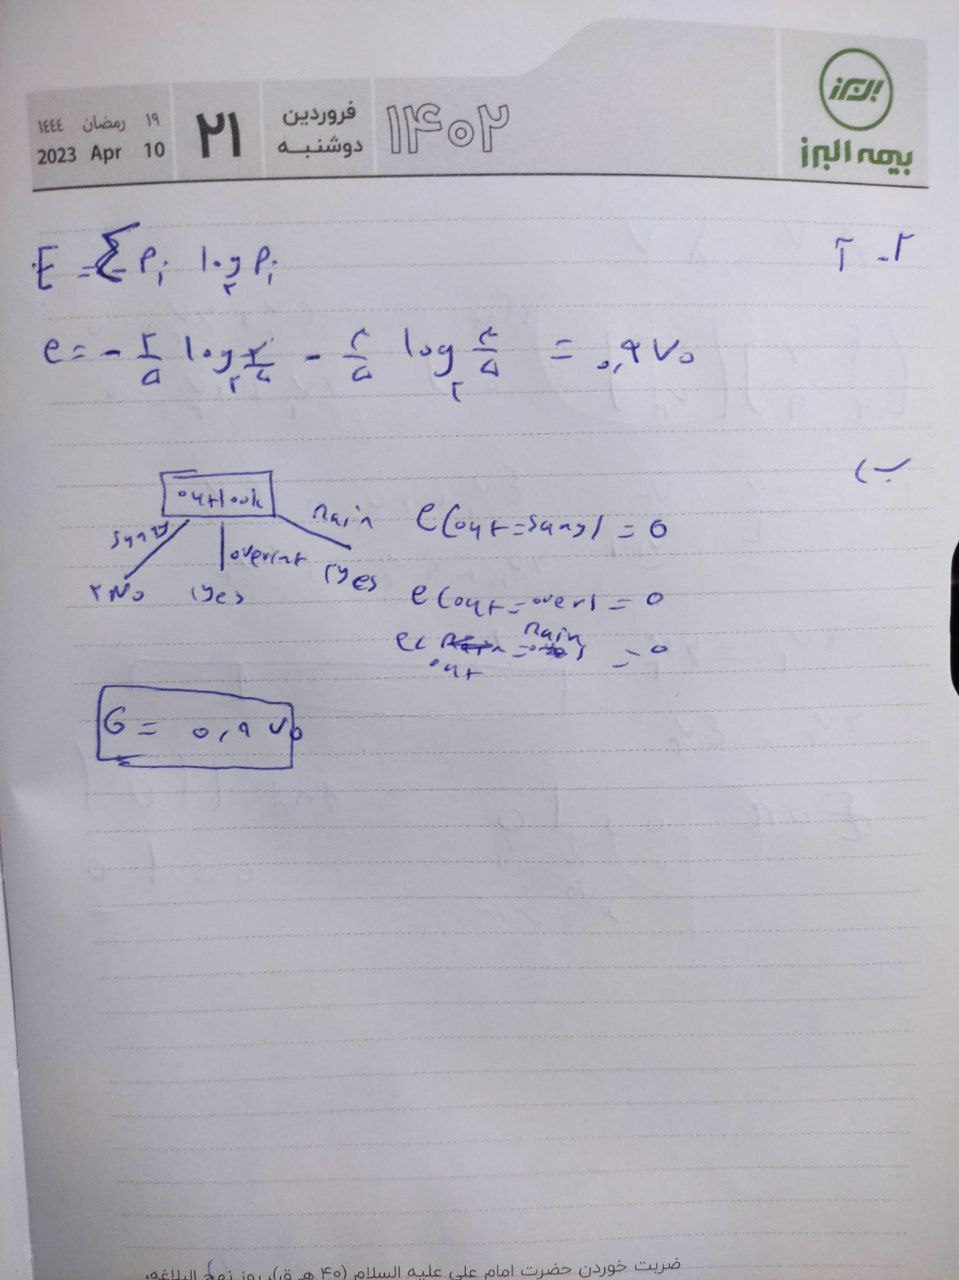 البرز
بیمه البرز
۱۴۰۲
فروردین
دوشنبه
۲۱
۱۹ رمضان ۱۴۴۴
2023 Apr 10
۲- آ
E = -Σ Pi log۲ Pi
e = - ۲/۵ log۲ ۲/۵ - ۳/۵ log۲ ۳/۵ = ۰,۹۷۰
ب)
outlook
Sunny
overcast
Rain
۲ No
۱ yes
۲ yes
e(out=sunny) = 0
e(out=over) = 0
e(out = Rain) = 0
G = 0,۹۷۰
ضربت خوردن حضرت امام علی علیه السلام (۴۰ ه‍ ق)، روز نهج البلاغه،